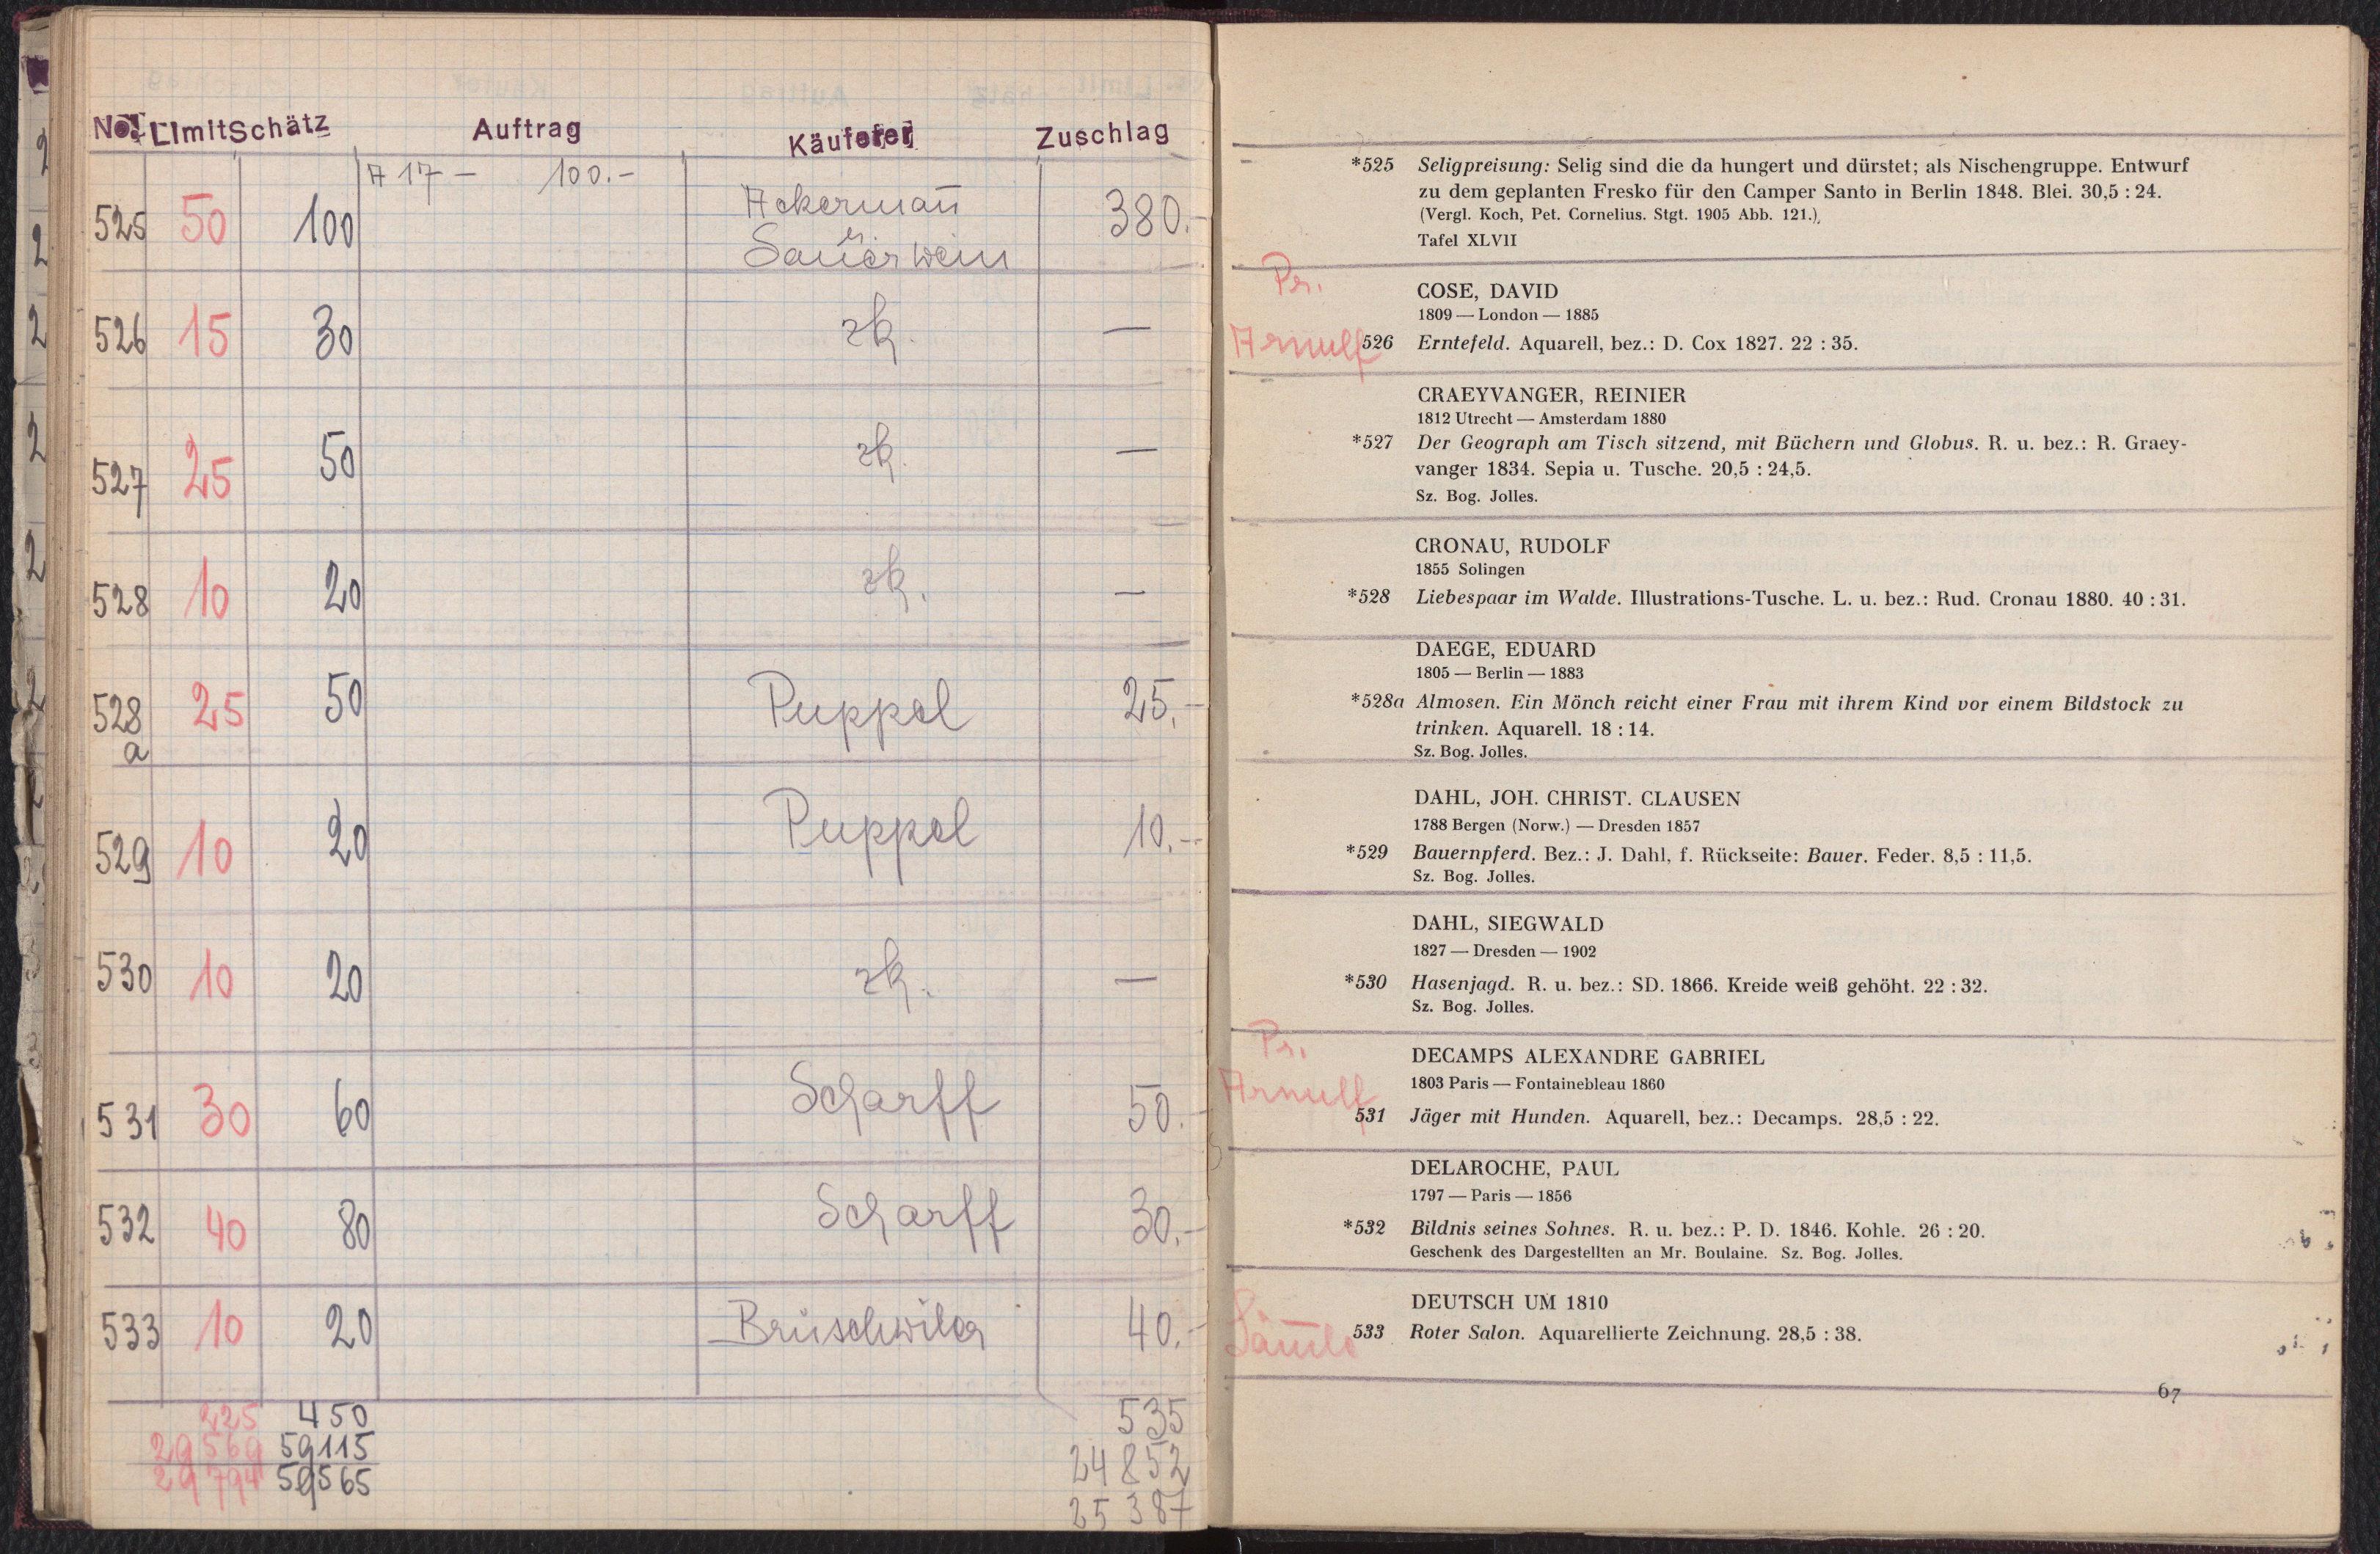 No. Limit Schätz Auftrag Käufer Zuschlag
A 17 – 100.–
525 50 100 Ackermañ 380.–
Sauerwein
526 15 30 zk. —
527 25 50 zk. —
528 10 20 zk. —
528 25 50 Puppel 25.–
a
529 10 20 Puppel 10.–
530 10 20 zk. —
531 30 60 Scharff 50.–
532 40 80 Scharff 30.–
533 10 20 Brüschwiler 40.–
225 450 535
29569 59115 24852
29794 59565 25387
*525 Seligpreisung: Selig sind die da hungert und dürstet; als Nischengruppe. Entwurf
zu dem geplanten Fresko für den Camper Santo in Berlin 1848. Blei. 30,5 : 24.
(Vergl. Koch, Pet. Cornelius. Stgt. 1905 Abb. 121.)
Tafel XLVII
Pr.
COSE, DAVID
1809 — London — 1885
Arnulf 526 Erntefeld. Aquarell, bez.: D. Cox 1827. 22 : 35.
CRAEYVANGER, REINIER
1812 Utrecht — Amsterdam 1880
*527 Der Geograph am Tisch sitzend, mit Büchern und Globus. R. u. bez.: R. Graey-
vanger 1834. Sepia u. Tusche. 20,5 : 24,5.
Sz. Bog. Jolles.
CRONAU, RUDOLF
1855 Solingen
*528 Liebespaar im Walde. Illustrations-Tusche. L. u. bez.: Rud. Cronau 1880. 40 : 31.
DAEGE, EDUARD
1805 — Berlin — 1883
*528a Almosen. Ein Mönch reicht einer Frau mit ihrem Kind vor einem Bildstock zu
trinken. Aquarell. 18 : 14.
Sz. Bog. Jolles.
DAHL, JOH. CHRIST. CLAUSEN
1788 Bergen (Norw.) — Dresden 1857
*529 Bauernpferd. Bez.: J. Dahl, f. Rückseite: Bauer. Feder. 8,5 : 11,5.
Sz. Bog. Jolles.
DAHL, SIEGWALD
1827 — Dresden — 1902
*530 Hasenjagd. R. u. bez.: SD. 1866. Kreide weiß gehöht. 22 : 32.
Sz. Bog. Jolles.
Pr.
DECAMPS ALEXANDRE GABRIEL
1803 Paris — Fontainebleau 1860
Arnulf
531 Jäger mit Hunden. Aquarell, bez.: Decamps. 28,5 : 22.
DELAROCHE, PAUL
1797 — Paris — 1856
*532 Bildnis seines Sohnes. R. u. bez.: P. D. 1846. Kohle. 26 : 20.
Geschenk des Dargestellten an Mr. Boulaine. Sz. Bog. Jolles.
DEUTSCH UM 1810
533 Roter Salon. Aquarellierte Zeichnung. 28,5 : 38.
67